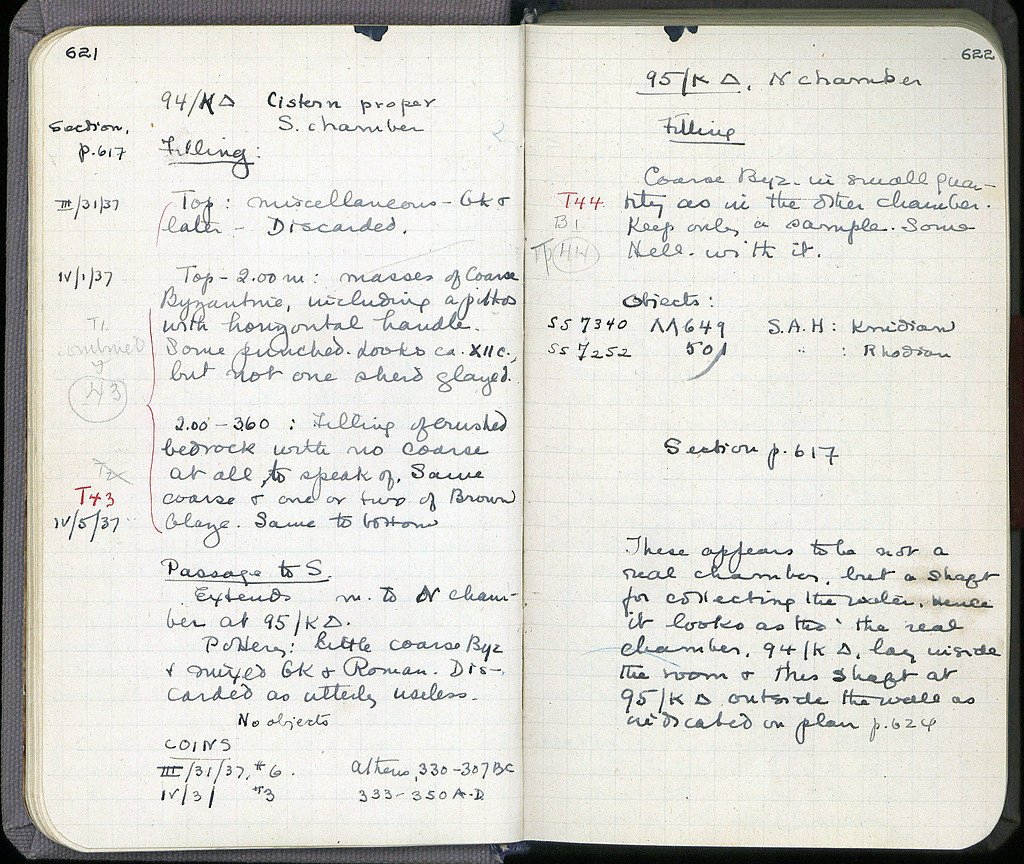 621
94/KΔ Cistern proper
S. chamber
Section,
p.617
Filling:
III/31/37
Top: miscellaneous - Gk &
later - Discarded.
IV/1/37
Top - 2.00 m: masses of Coarse
Byzantine, including a pithos
with horizontal handle.
Some punched. Looks ca. XII c.,
but not one sherd glazed.
T1
combined
43
2.00 - 360 : Filling of crushed
bedrock with no coarse
at all, to speak of. Same
coarse & one or two of Brown
Glaze. Same to bottom
T2
T43
IV/5/37
Passage to S.
Extends m. to N cham-
ber at 95/KΔ.
Pottery: little coarse Byz
& mixed Gk & Roman. Dis-
carded as utterly useless.
No objects
COINS
III/31/37, #6. Athens, 330-307 BC
IV/31 #3 333-350 A.D.
622
95/KΔ, N chamber
Filling
Coarse Byz. in small quan-
tity as in the other chamber.
Keep only a sample. Some
Hell. with it.
T44
B1
Tp 44
Objects:
SS 7340 ΛΛ649 S.A.H: Knidian
SS 7252 501 " : Rhodian
Section p. 617
These appears to be not a
real chamber, but a shaft
for collecting the water. Hence
it looks as tho' the real
chamber, 94/KΔ, lay inside
the room & this shaft at
95/KΔ outside the wall as
indicated on plan p.624